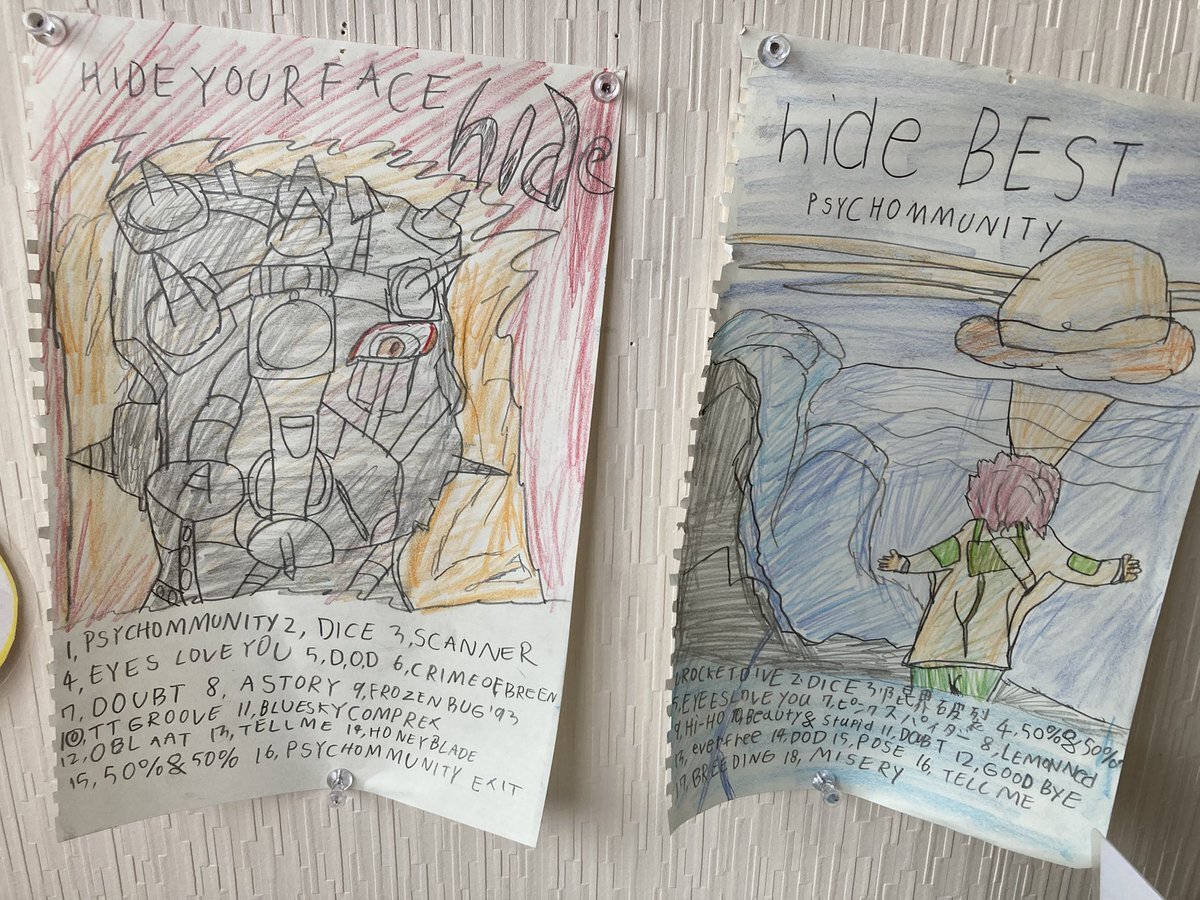 HIDE YOUR FACE
hide
1, PSYCHOMMUNITY 2, DICE 3, SCANNER
4, EYES LOVE YOU 5, D,O,D 6, CRIME OF BREEN
7, DOUBT 8, A STORY 9, FROZEN BUG '93
10, TT GROOVE 11, BLUE SKY COMPREX
12, OBLAAT 13, TELL ME 14, HONEY BLADE
15, 50%&50% 16, PSYCHOMMUNITY EXIT
hide BEST
PSYCHOMMUNITY
ROCKET DIVE 2, DICE 3, 4, 50%&50%
EYES LOVE YOU 7, ピークスパイダー 8, LEMONNed
9, Hi-HO 10, Beauty & Stupid 11, DOUBT 12, GOOD BYE
13, ever free 14, DOD 15, POSE 16, TELL ME
17, BREEDING 18, MISERY